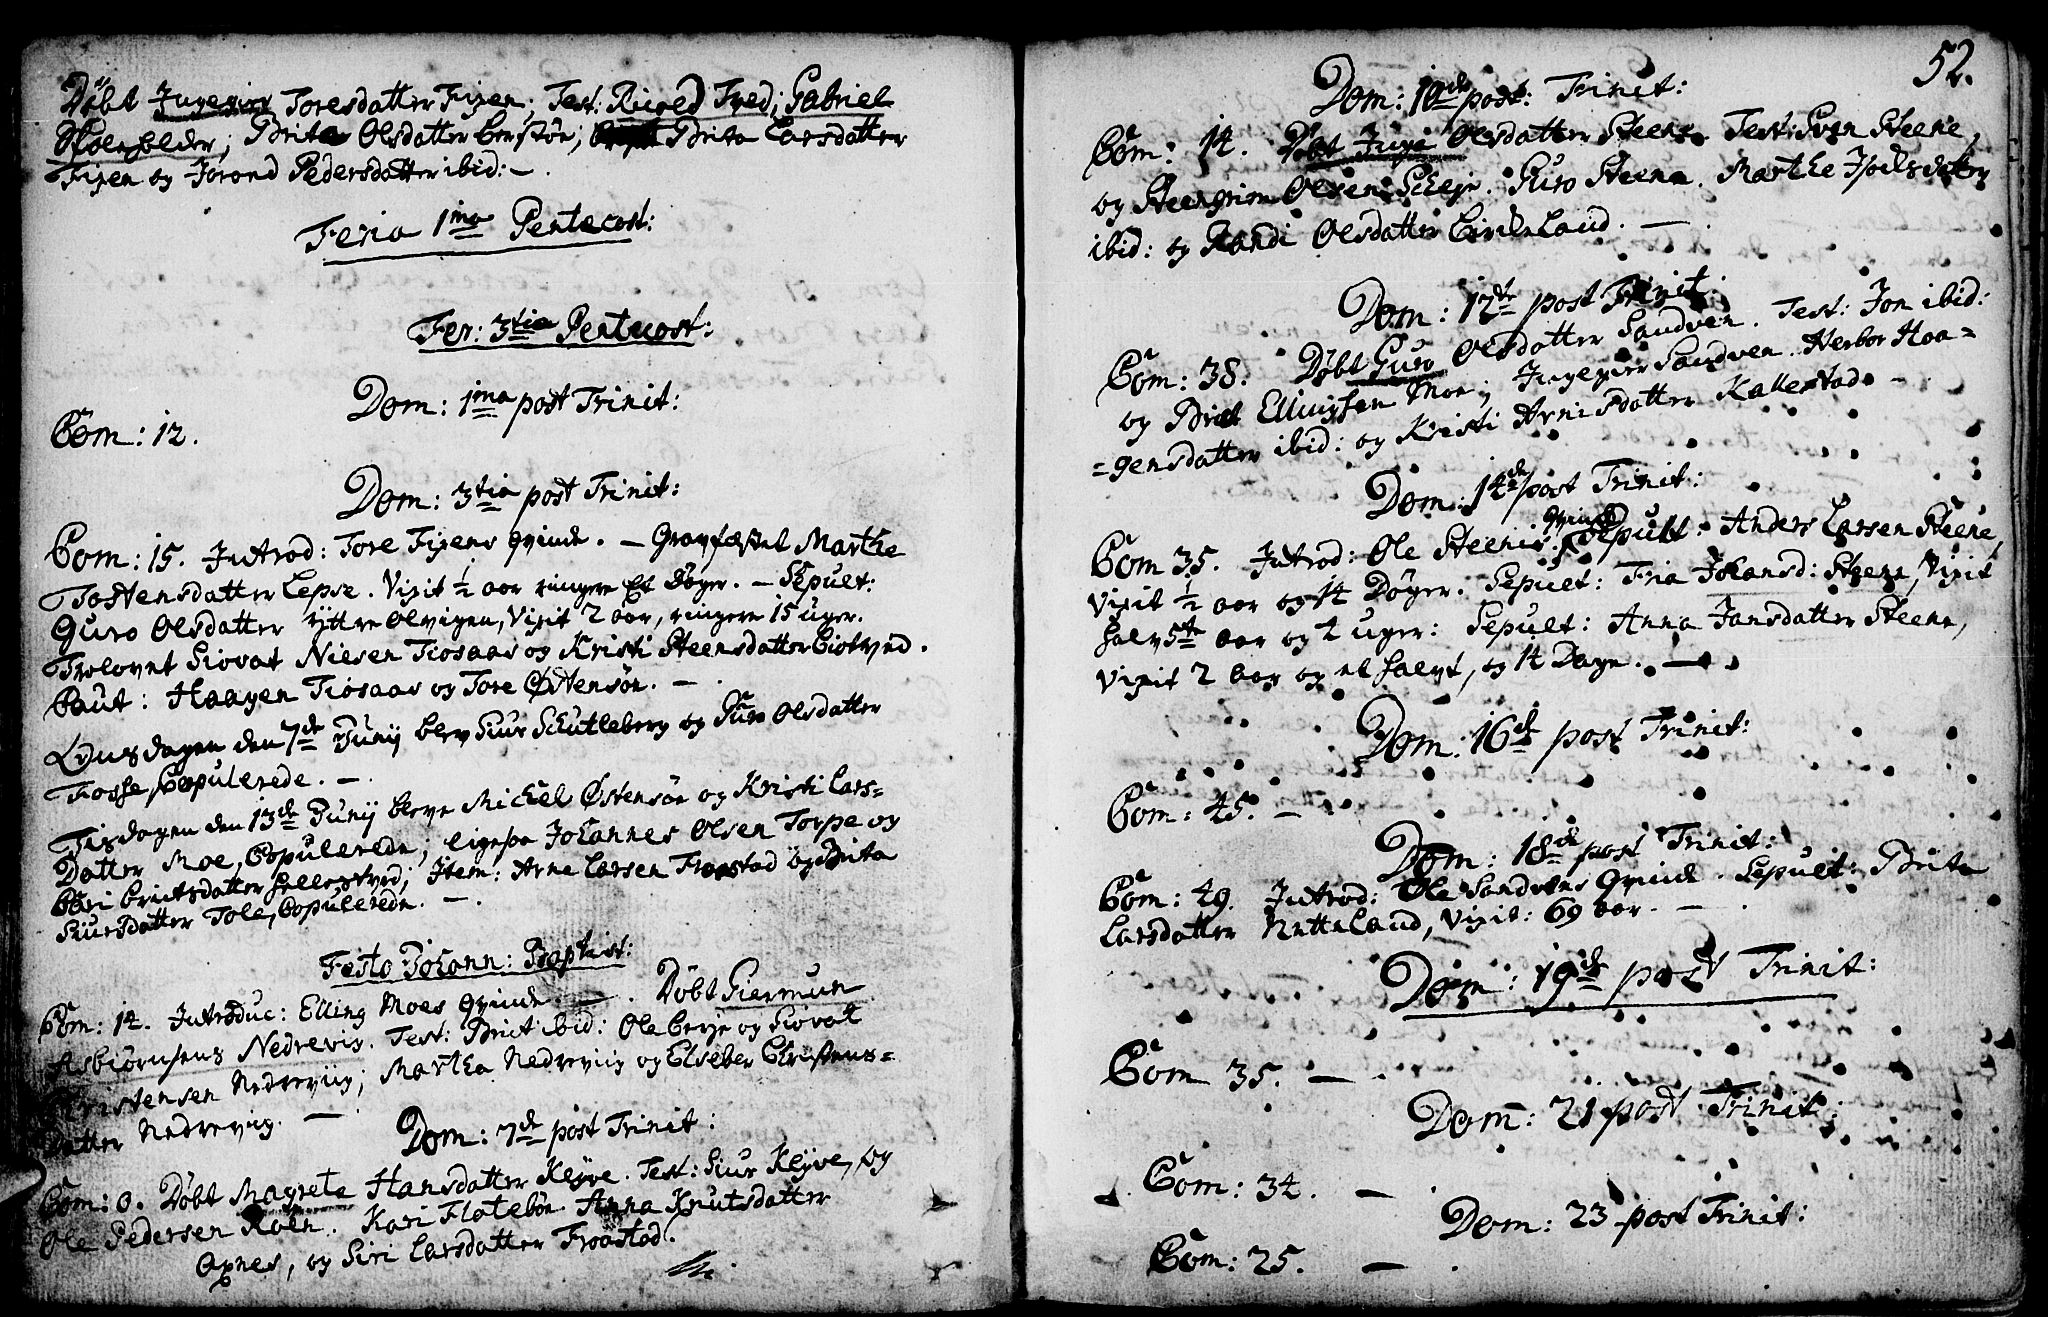 Döbt Ingegier Toresdatter Fixen. Test: Rigved Fixed; Gabriel
Skoleholder; Brita Olsdatter Berstön; Brita Larsdatter
Fixen og Jorond Pedersdatter ibid: —.
Feria 1ma Pentecost:
Fer: 3tia Pentecost:
Dom: 1ma post Trinit:
Com: 12.
Dom: 3tia post Trinit:
Com: 15. Introd: Tore Fixens Qvinde. — Gravfæstet Marthe
Tostensdatter Lepse. Vixit ½ aar ringere Et Döger. — Sepult:
Guro Olsdatter yttre Olvigen, Vixit 2 aar, ringere 15 uger.
Trolovet Siovat Nielsen Tiosaas og Kristi Steensdatter Biotved.
Caut: Haagen Tiosaas og Tore Östensön. —.
Löversdagen den 7de Junij blev Siur Skutleberg og Guro Olsdatter
Fosse Copulerede. —.
Tisdagen den 13de Junij bleve Michel Östensön og Kristi Lars=
Datter Moe, Copulerede; ligesaa Johannes Olsen Torpe og
Cari Brutsdatter Hellestved; Item: Arne Larsen Froastad og Brita
Siursdatter Tole, Copulerede. —.
Festo Johann: Baptist:
Com: 14. Introduc: Elling Moes Qvinde. —. Döbt Giermun
Asbiörnsens Nedrevig. Test: Brict ibid: Ole Berge og Siovat
Christensen Nedrevig; Martha Nedrevig og Elseber Christens=
datter Nedrevig. —.
Dom: 7de post Trinit:
Com: 0. Döbt Magrete Hansdatter Kleyve. Test: Siur Kleyve, og
Ole Pedersen Roen. Kari Flatebön. Anna Knutsdatter
Axnes, og Siri Larsdatter Froastad.
52.
Dom: 10de post: Trinit:
Com: 14. Döbt Inga Olsdatter Steene. Test: Sven Steene,
og Steengrim Olsen Scheie. Guro Steene. Marthe Isaelsdatter
ibid: og Randi Olsdatter Birkeland. —.
Dom: 12te post Trinit:
Com: 38. Döbt Guro Olsdatter Sandven. Test: Jon ibid:
og Brict Ellingsen Moe; Ingegier Sandven. Herbor Haa=
=gensdatter ibid: og Kristi Arnisdatter Kallestad. —
Dom: 14de post Trinit:
Com 35. Introd: Ole Steenes Qvinde. Sepult: Anders Larsen Steene,
Vixit ½ aar og 14 Döger. Sepult: Fria Johansd: Steene, Vixit
halv 5te aar og 2 uger: Sepult: Anna Jansdatter Steene,
Vixit 2 aar og et halvt, og 14 Dage. —.
Dom: 16de post Trinit:
Com: 45. —
Dom: 18de post Trinit:
Com: 49. Introd: Ole Sandvens Qvinde. Sepult: Brita
Larsdatter Netteland, Vixit: 69 aar. —.
Dom: 19de post Trinit:
Com 35. —.
Dom: 21 post Trinit:
Com: 34. —.
Dom: 23 post Trinit:
Com: 25. —.